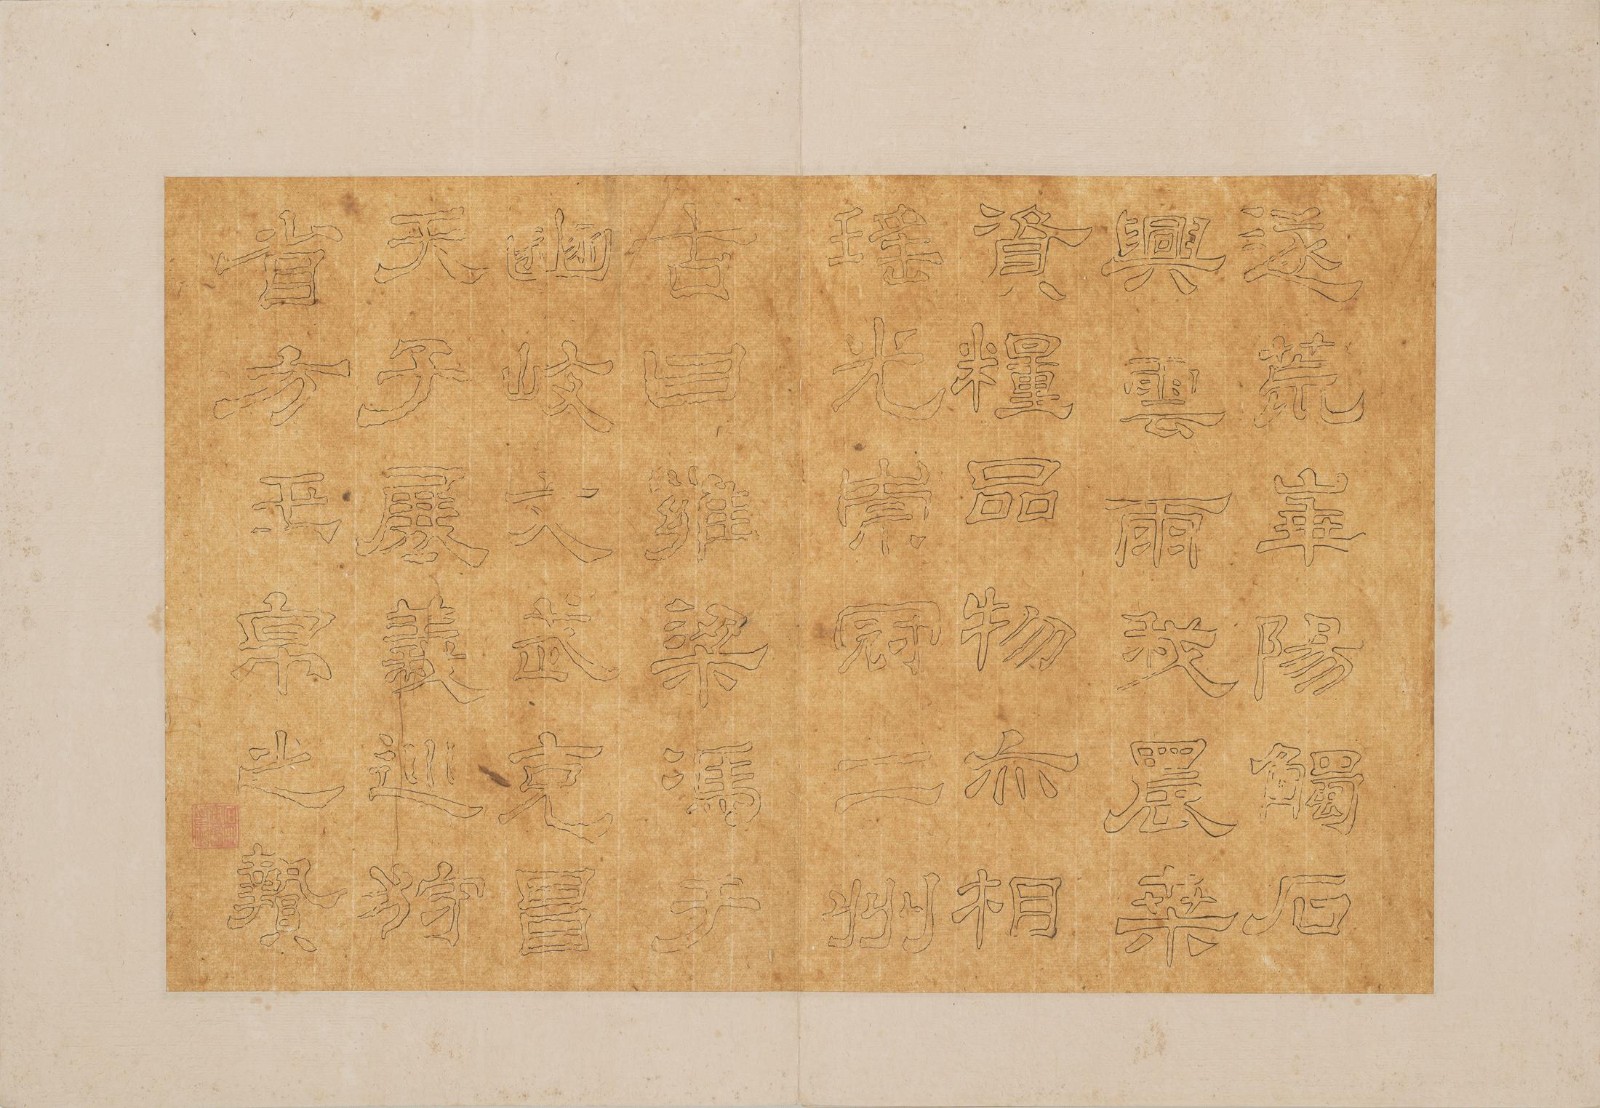 遂荒崋陽觸石
興雲雨我農桒
資糧品物亦相
瑤光崇冠二州
古曰雍梁馮于
豳岐文武克昌
天子展義巡狩
省方玉帛之贄